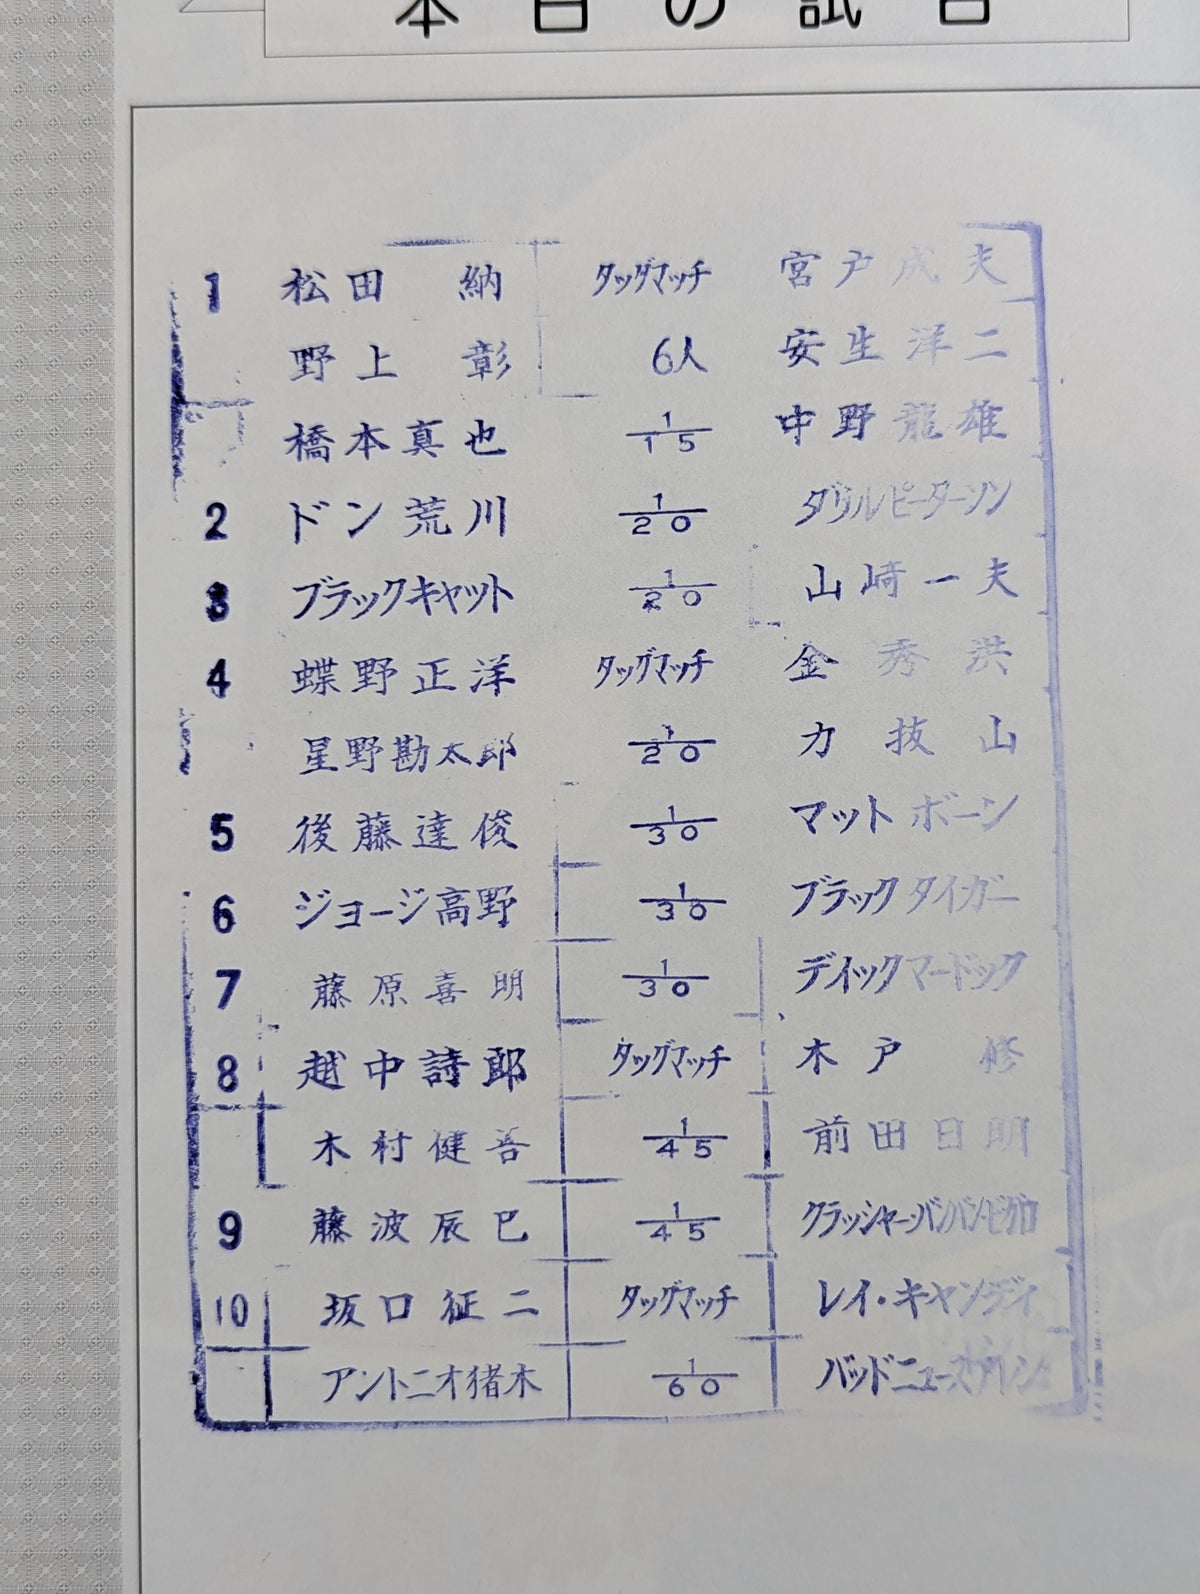 本日の試合
1 松田 納 タッグマッチ 宮戸成夫
野上 彰 6人 安生洋二
橋本真也 1/15 中野龍雄
2 ドン荒川 1/20 ダリルピーターソン
3 ブラックキャット 1/20 山崎一夫
4 蝶野正洋 タッグマッチ 金秀洪
星野勘太郎 1/20 力抜山
5 後藤達俊 1/30 マットボーン
6 ジョージ高野 1/30 ブラックタイガー
7 藤原喜明 1/30 デイックマードック
8 越中詩郎 タッグマッチ 木戸 修
木村健吾 1/45 前田日明
9 藤波辰巳 1/45 クラッシャーバンバンビガロ
10 坂口征二 タッグマッチ レイ・キャンディ
アントニオ猪木 1/60 バッドニュースアレン